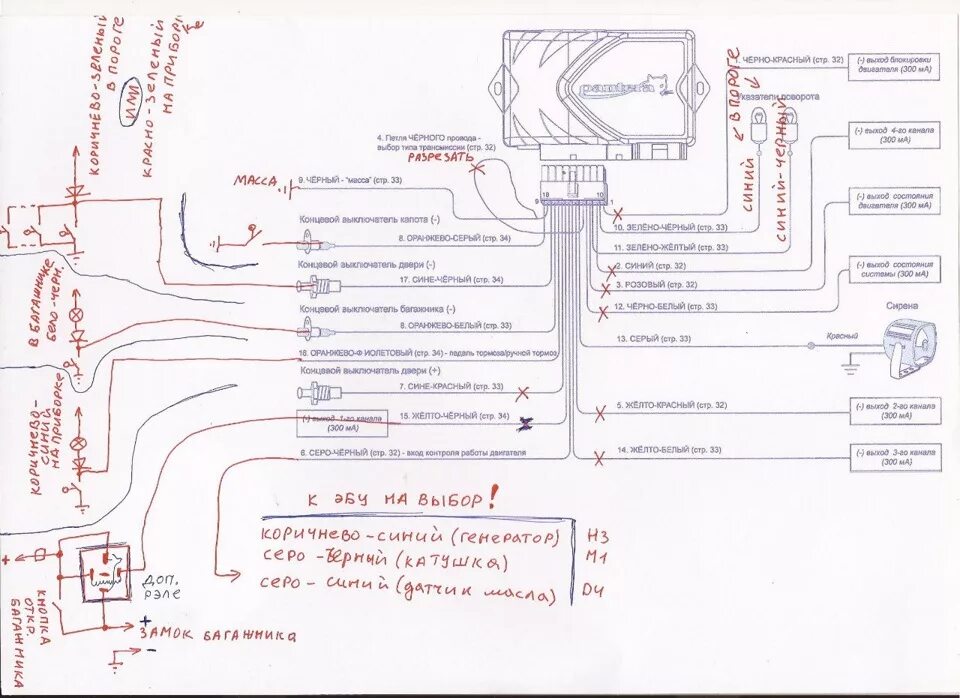 КОРИЧНЕВО-ЗЕЛЕНЫЙ
В ПОРОГЕ
ИЛИ
КРАСНО-ЗЕЛЕНЫЙ
НА ПРИБОРКе
pantera
4. Петля ЧЁРНОГО провода -
выбор типа трансмиссии (стр. 32)
РАЗРЕЗАТЬ
МАССА
9. ЧЁРНЫЙ - "масса" (стр. 33)
18
9
10
1
Концевой выключатель капота (-)
8. ОРАНЖЕВО-СЕРЫЙ (стр. 34)
Концевой выключатель двери (-)
17. СИНЕ-ЧЁРНЫЙ (стр. 34)
Концевой выключатель багажника (-)
8. ОРАНЖЕВО-БЕЛЫЙ (стр. 33)
16. ОРАНЖЕВО-ФИОЛЕТОВЫЙ (стр. 34) - педаль тормоза/ручной тормоз
Концевой выключатель двери (+)
7. СИНЕ-КРАСНЫЙ (стр. 33)
15. ЖЁЛТО-ЧЁРНЫЙ (стр. 34)
(-) выход 1-го канала
(300 мА)
6. СЕРО-ЧЁРНЫЙ (стр. 32) - вход контроля работы двигателя
1. ЧЁРНО-КРАСНЫЙ (стр. 32)
(-) выход блокировки
двигателя (300 мА)
Указатели поворота
В ПОРОГЕ
СИНИЙ
СИНИЙ-ЧЕРНЫЙ
(-) выход 4-го канала
(300 мА)
10. ЗЕЛЁНО-ЧЁРНЫЙ (стр. 33)
11. ЗЕЛЁНО-ЖЁЛТЫЙ (стр. 33)
(-) выход состояния
двигателя (300 мА)
2. СИНИЙ (стр. 32)
3. РОЗОВЫЙ (стр. 32)
(-) выход состояния
системы (300 мА)
12. ЧЁРНО-БЕЛЫЙ (стр. 33)
Сирена
13. СЕРЫЙ (стр. 33)
Красный
5. ЖЁЛТО-КРАСНЫЙ (стр. 32)
(-) выход 2-го канала
(300 мА)
14. ЖЁЛТО-БЕЛЫЙ (стр. 33)
(-) выход 3-го канала
(300 мА)
В БАГАЖНИКЕ
БЕЛО-ЧЕРН.
КОРИЧНЕВО-
СИНИЙ
НА ПРИБОРКЕ
К ЭБУ НА ВЫБОР!
КОРИЧНЕВО-СИНИЙ (генератор) H3
СЕРО-ЧЕРНЫЙ (КАТУШКА) M1
СЕРО-СИНИЙ (датчик масла) D4
+
ДОП.
РЭЛЕ
КНОПКА
ОТКР.
БАГАЖНИКА
+
ЗАМОК БАГАЖНИКА
-